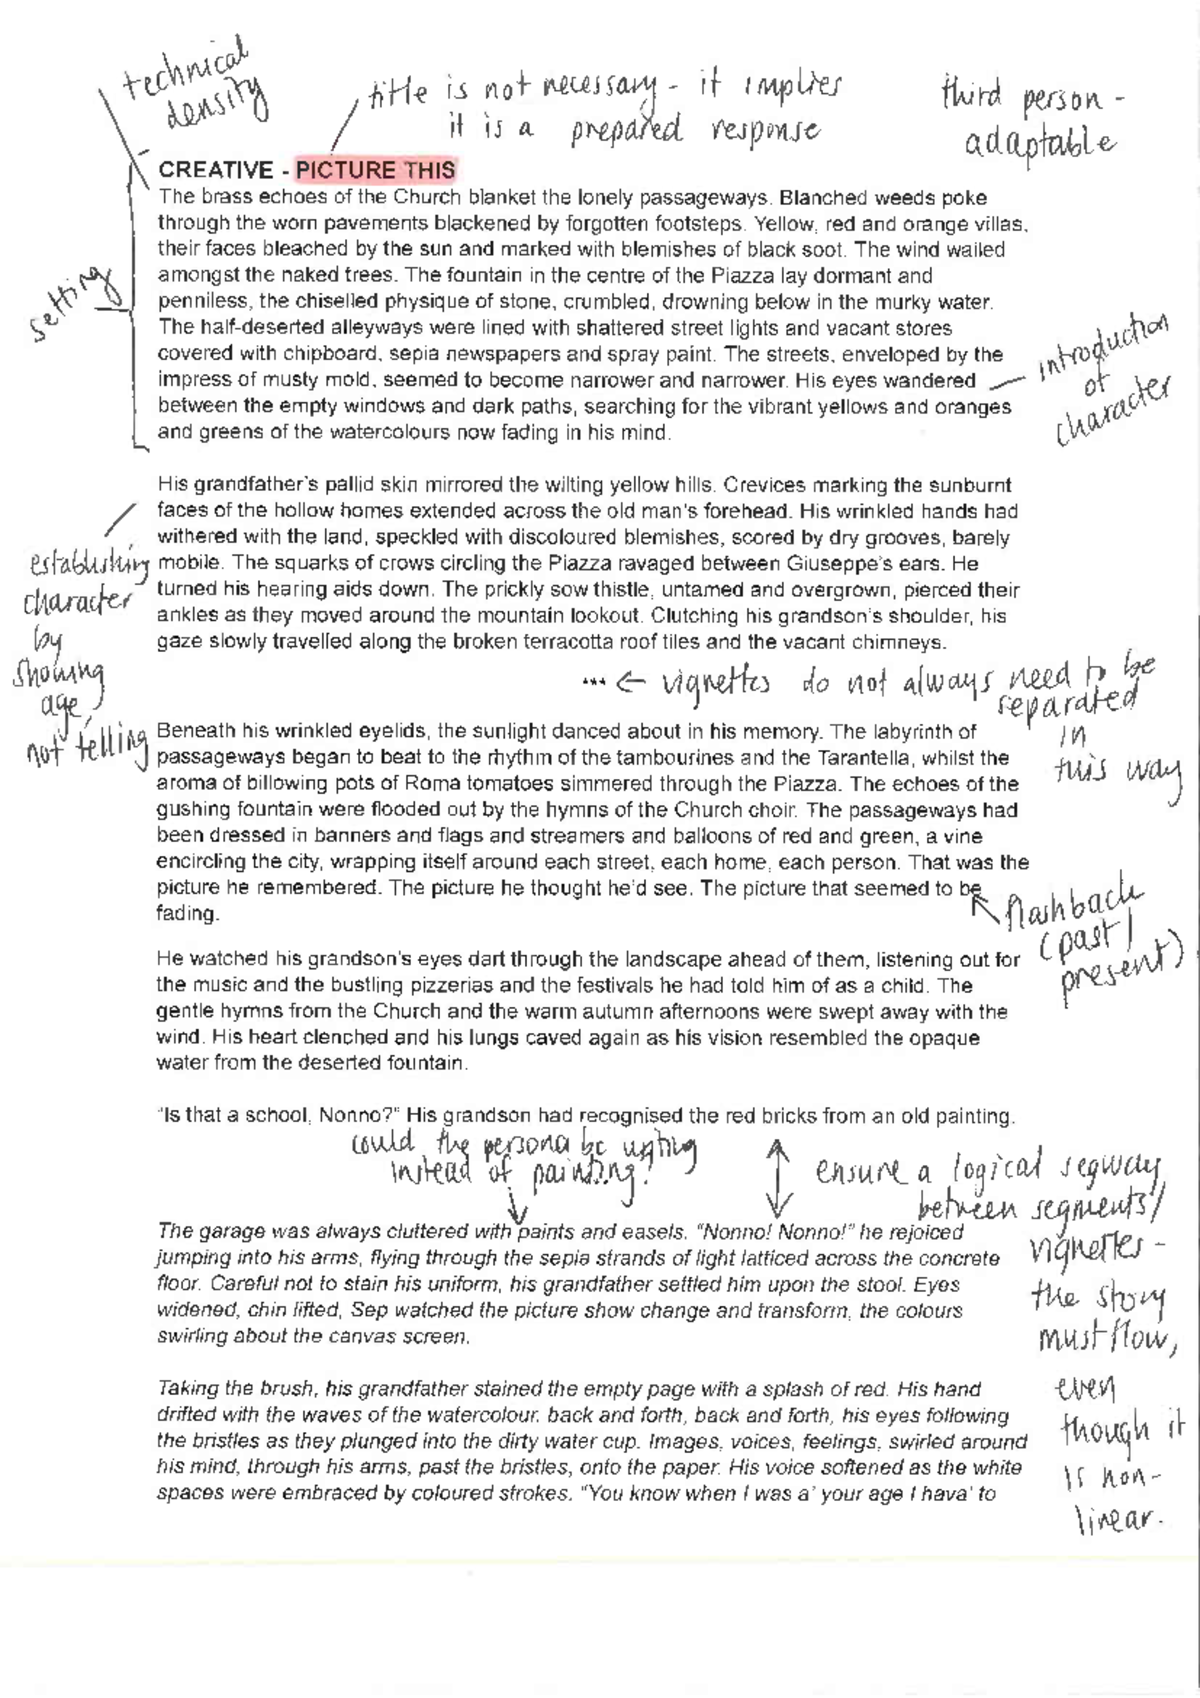 technical
density
title is not necessary - it implies
it is a prepared response
third person -
adaptable
CREATIVE - PICTURE THIS
The brass echoes of the Church blanket the lonely passageways. Blanched weeds poke
through the worn pavements blackened by forgotten footsteps. Yellow, red and orange villas,
their faces bleached by the sun and marked with blemishes of black soot. The wind wailed
amongst the naked trees. The fountain in the centre of the Piazza lay dormant and
penniless, the chiselled physique of stone, crumbled, drowning below in the murky water.
The half-deserted alleyways were lined with shattered street lights and vacant stores
covered with chipboard, sepia newspapers and spray paint. The streets, enveloped by the
impress of musty mold, seemed to become narrower and narrower. His eyes wandered
between the empty windows and dark paths, searching for the vibrant yellows and oranges
and greens of the watercolours now fading in his mind.
setting
introduction
of
character
His grandfather's pallid skin mirrored the wilting yellow hills. Crevices marking the sunburnt
faces of the hollow homes extended across the old man's forehead. His wrinkled hands had
withered with the land, speckled with discoloured blemishes, scored by dry grooves, barely
mobile. The squarks of crows circling the Piazza ravaged between Giuseppe's ears. He
turned his hearing aids down. The prickly sow thistle, untamed and overgrown, pierced their
ankles as they moved around the mountain lookout. Clutching his grandson's shoulder, his
gaze slowly travelled along the broken terracotta roof tiles and the vacant chimneys.
establishing
character
by
showing
age,
not telling
... ← vignettes do not always need to be
separated
in
this way
Beneath his wrinkled eyelids, the sunlight danced about in his memory. The labyrinth of
passageways began to beat to the rhythm of the tambourines and the Tarantella, whilst the
aroma of billowing pots of Roma tomatoes simmered through the Piazza. The echoes of the
gushing fountain were flooded out by the hymns of the Church choir. The passageways had
been dressed in banners and flags and streamers and balloons of red and green, a vine
encircling the city, wrapping itself around each street, each home, each person. That was the
picture he remembered. The picture he thought he'd see. The picture that seemed to be
fading.
flashback
(past/
present)
He watched his grandson's eyes dart through the landscape ahead of them, listening out for
the music and the bustling pizzerias and the festivals he had told him of as a child. The
gentle hymns from the Church and the warm autumn afternoons were swept away with the
wind. His heart clenched and his lungs caved again as his vision resembled the opaque
water from the deserted fountain.
"Is that a school, Nonno?" His grandson had recognised the red bricks from an old painting.
could the persona be writing
instead of painting?
ensure a logical segway
between segments/
vignettes -
the story
must flow,
even
though it
is non-
linear.
The garage was always cluttered with paints and easels. "Nonno! Nonno!" he rejoiced
jumping into his arms, flying through the sepia strands of light latticed across the concrete
floor. Careful not to stain his uniform, his grandfather settled him upon the stool. Eyes
widened, chin lifted, Sep watched the picture show change and transform, the colours
swirling about the canvas screen.
Taking the brush, his grandfather stained the empty page with a splash of red. His hand
drifted with the waves of the watercolour, back and forth, back and forth, his eyes following
the bristles as they plunged into the dirty water cup. Images, voices, feelings, swirled around
his mind, through his arms, past the bristles, onto the paper. His voice softened as the white
spaces were embraced by coloured strokes. "You know when I was a' your age I hava' to